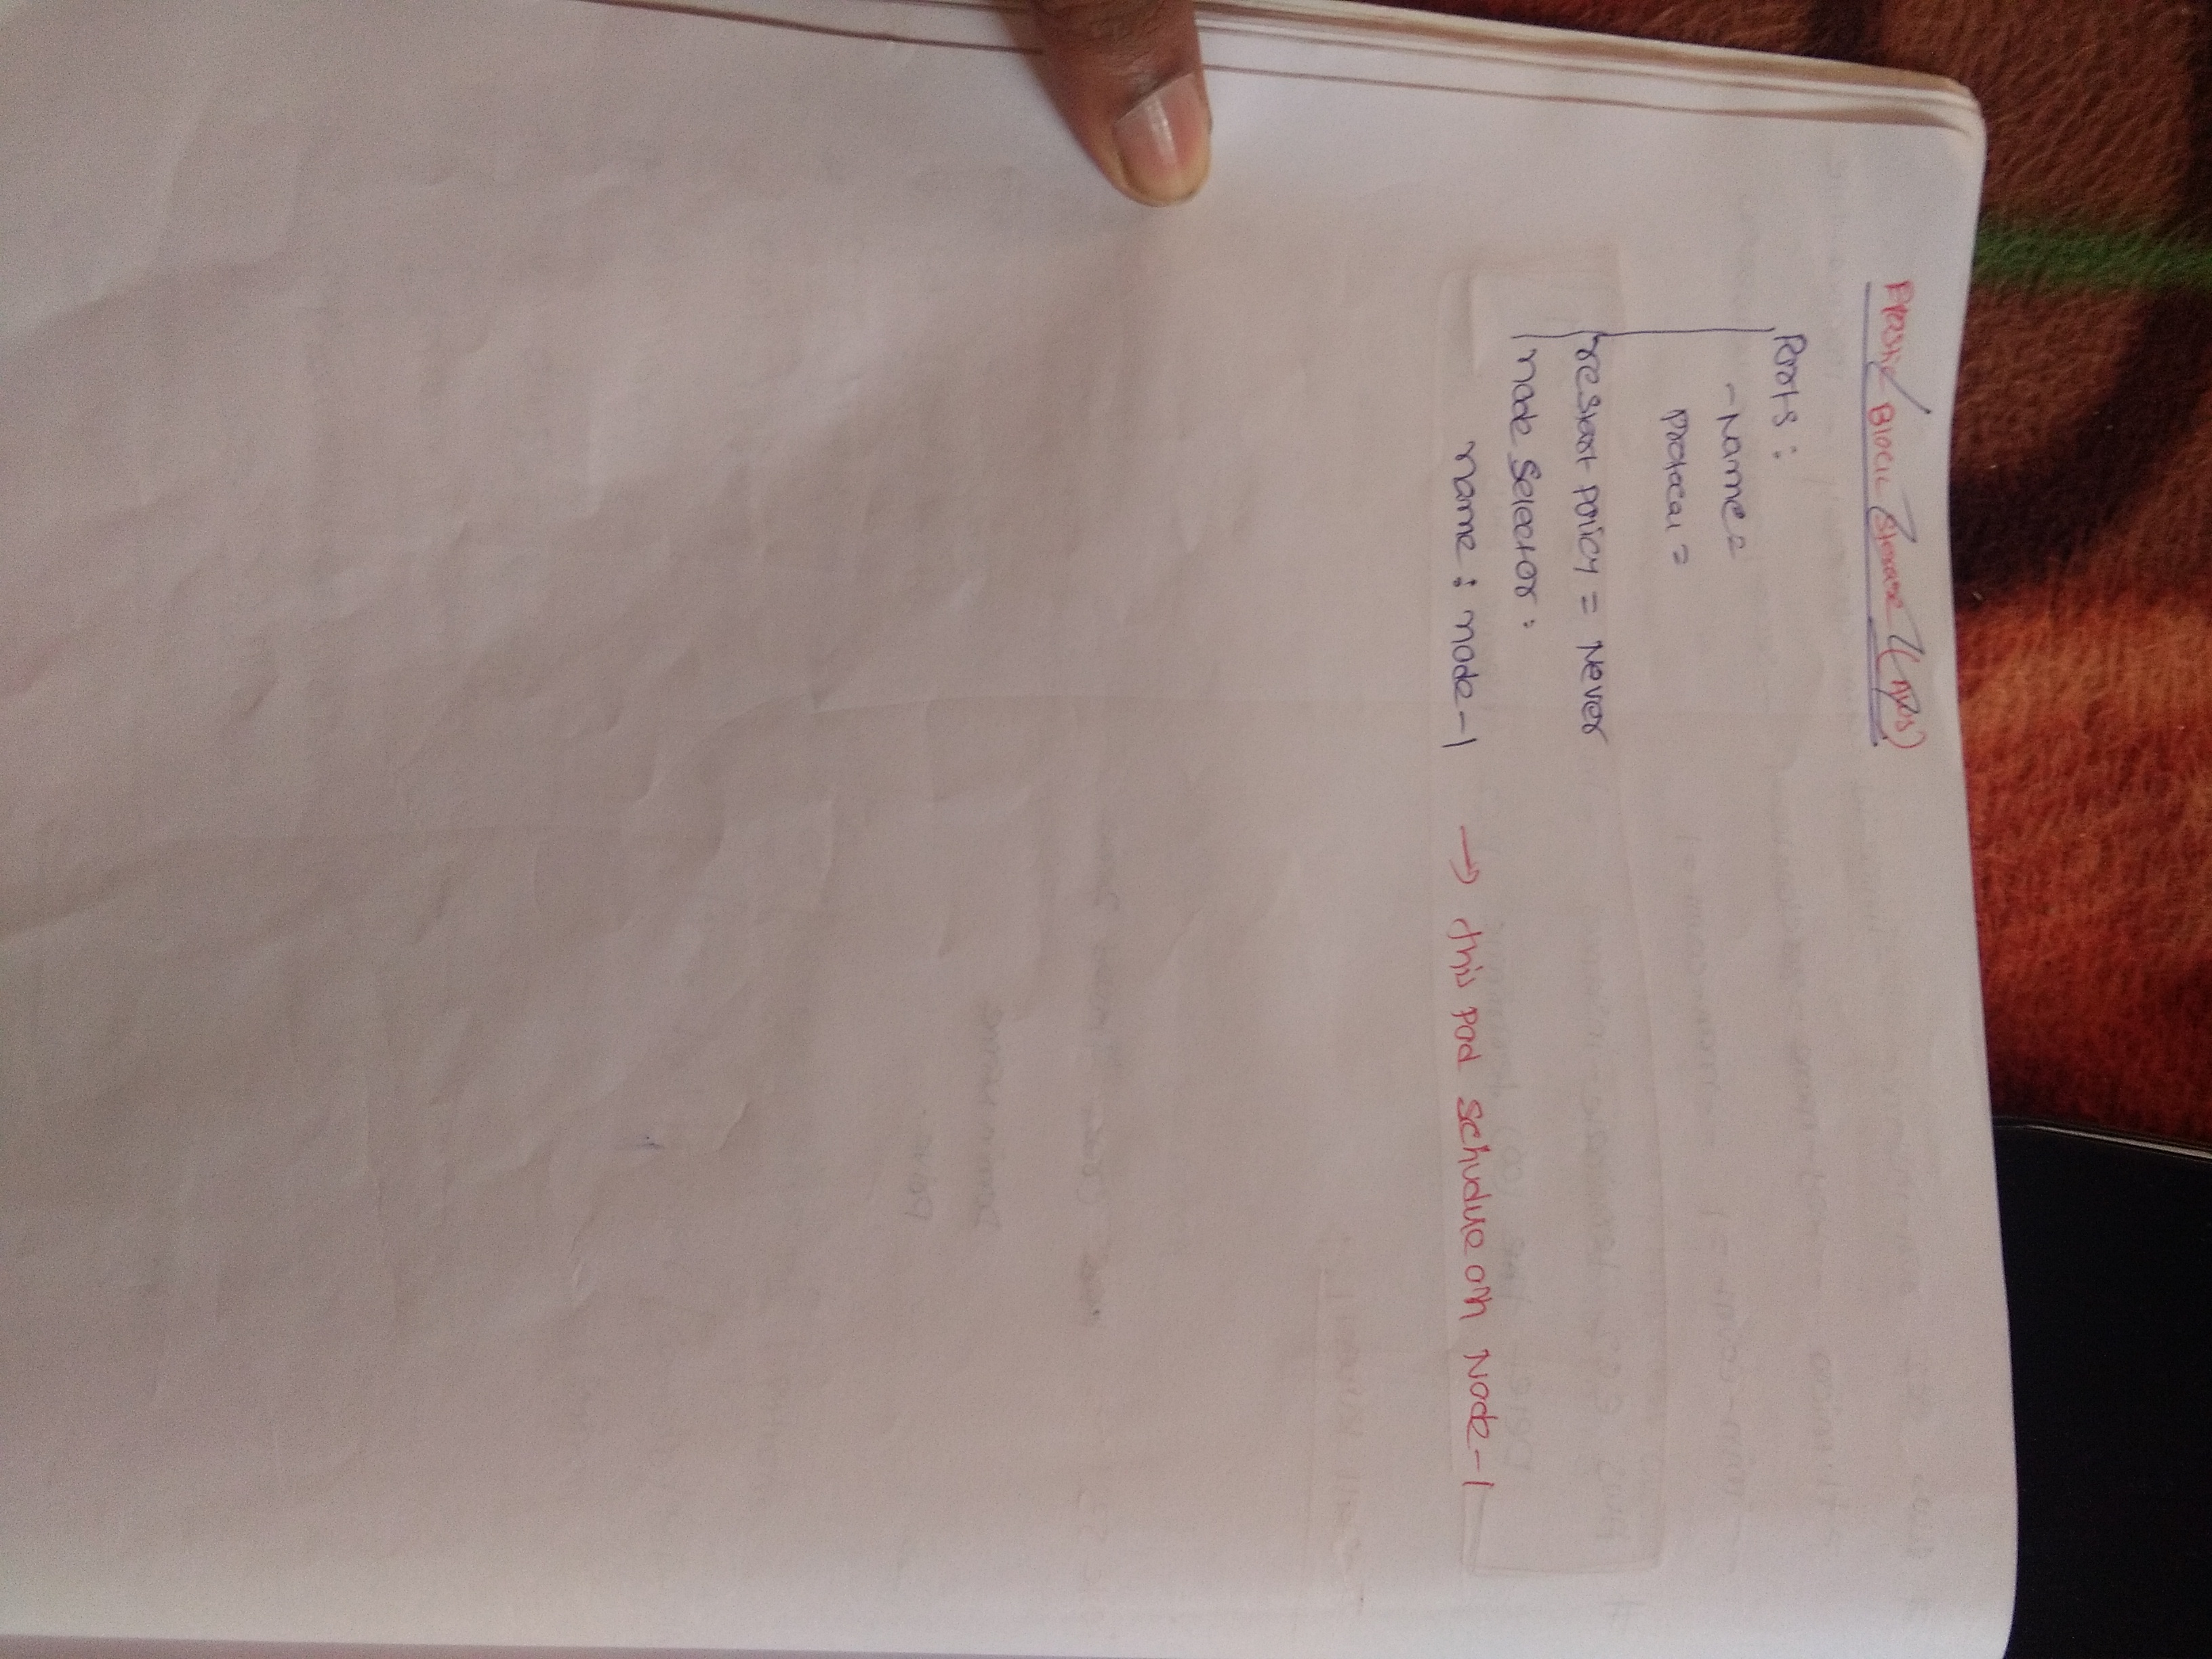 Elastic Block Storage (AWS)
Ports :
- Name =
Protocol =
restart policy = Never
node selector :
name : node-1 → this pod schudue on Node-1